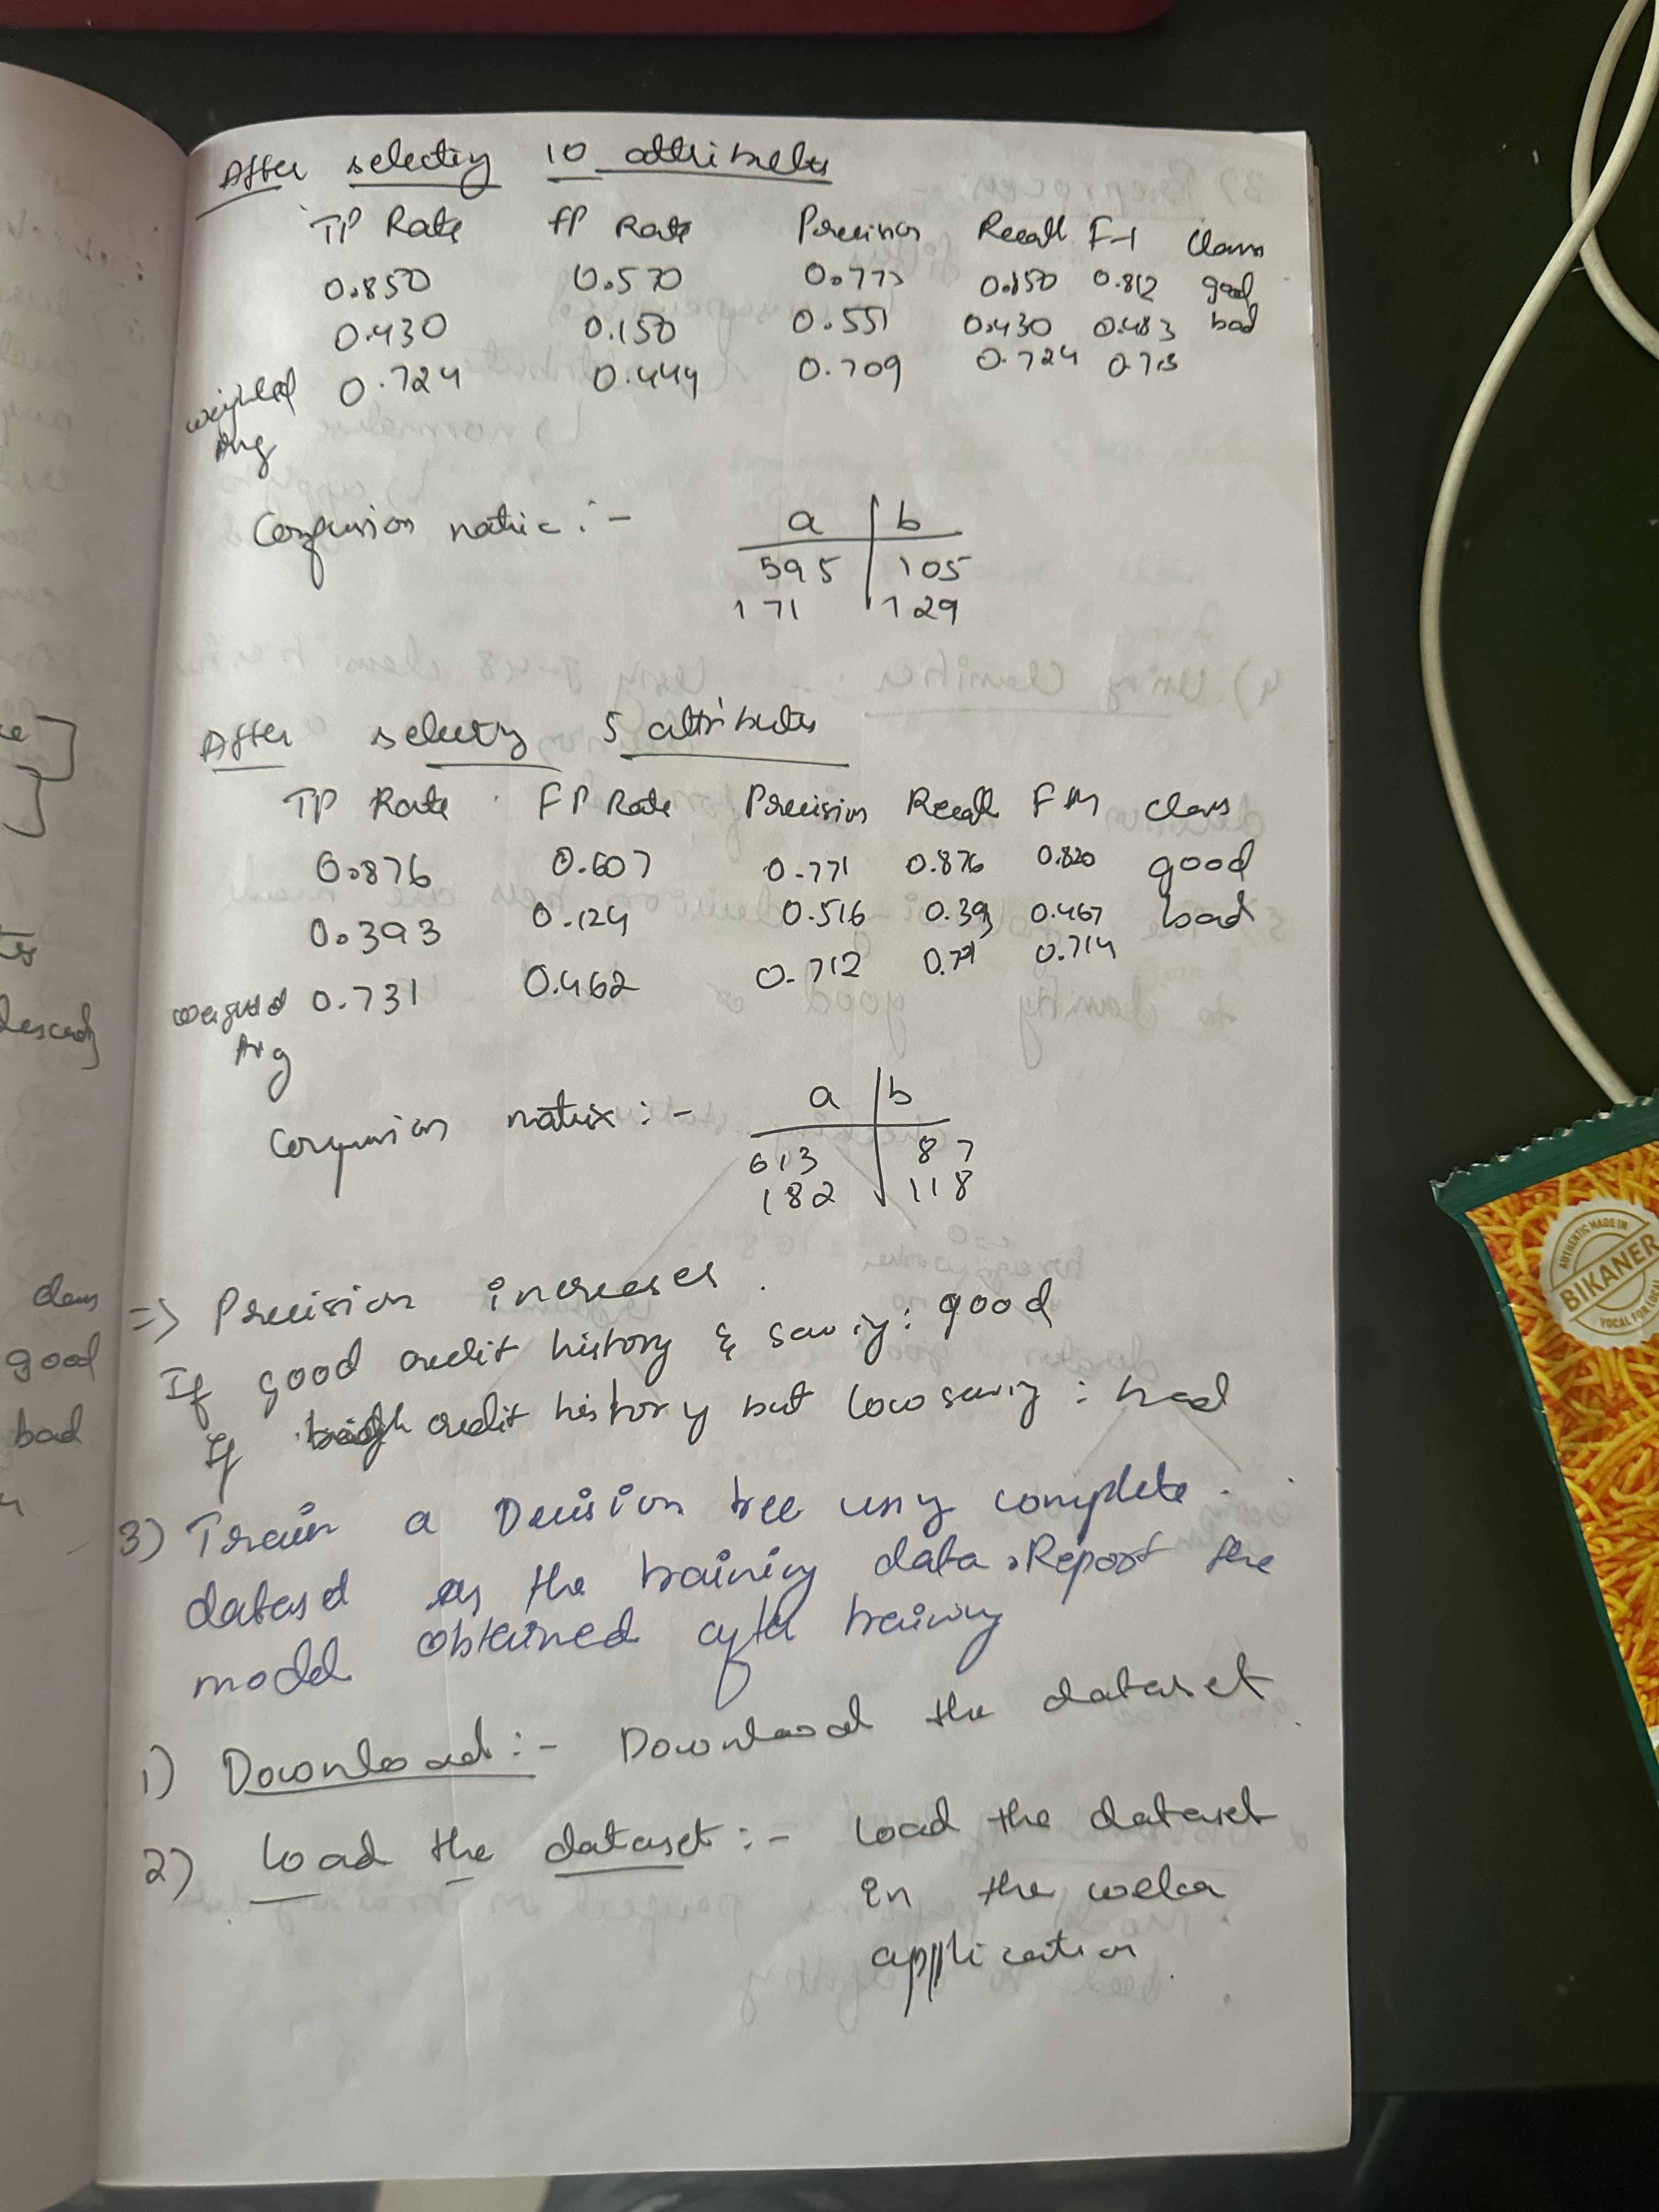 After selecting 10 attributes
TP Rate FP Rate Precision Recall F-1 Class
0.850 0.570 0.777 0.850 0.812 good
0.430 0.150 0.551 0.430 0.483 bad
weighted 0.724 0.444 0.709 0.724 0.713
Avg
Confusion matric :-
a b
595 105
171 129
After selecting 5 attributes
TP Rate FP Rate Precision Recall FM class
0.876 0.607 0.771 0.876 0.820 good
0.393 0.124 0.516 0.393 0.467 bad
weighted 0.731 0.462 0.712 0.714
Avg
Confusion matrix :-
a b
613 87
182 118
=> Precision increases.
If good credit history & saving : good
If high credit history but low saving : bad
3) Train a Decision tree using complete
dataset as the training data. Report the
model obtained after training
1) Download :- Download the dataset
2) Load the dataset :- Load the dataset
in the weka
application.
ce]
descend
class
good
bad
AUTHENTIC MADE IN
BIKANER
VOCAL FOR LOCAL